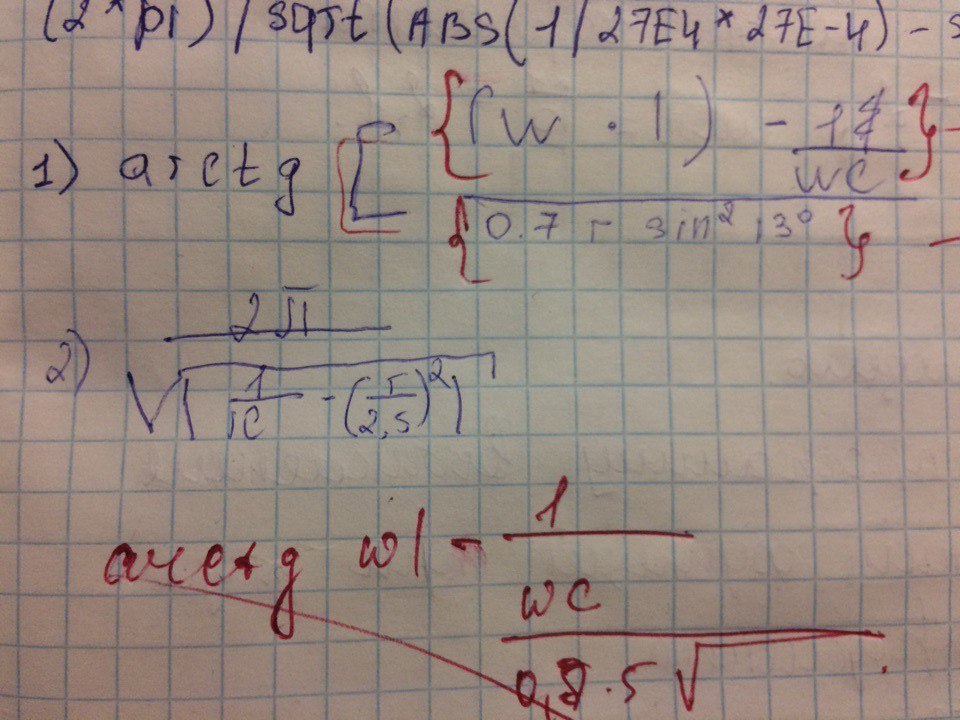 (2 * pi) / sqrt (ABS (1 / 27E4 * 27E-4) - 5
1) arctg [ { (w · l) - 1
wC }
{ 0.7 r sin² 13° }
2) 2π
√| 1/lC - (r/2,5)² |
arctg wl - 1
wc
0,8 · 5 √